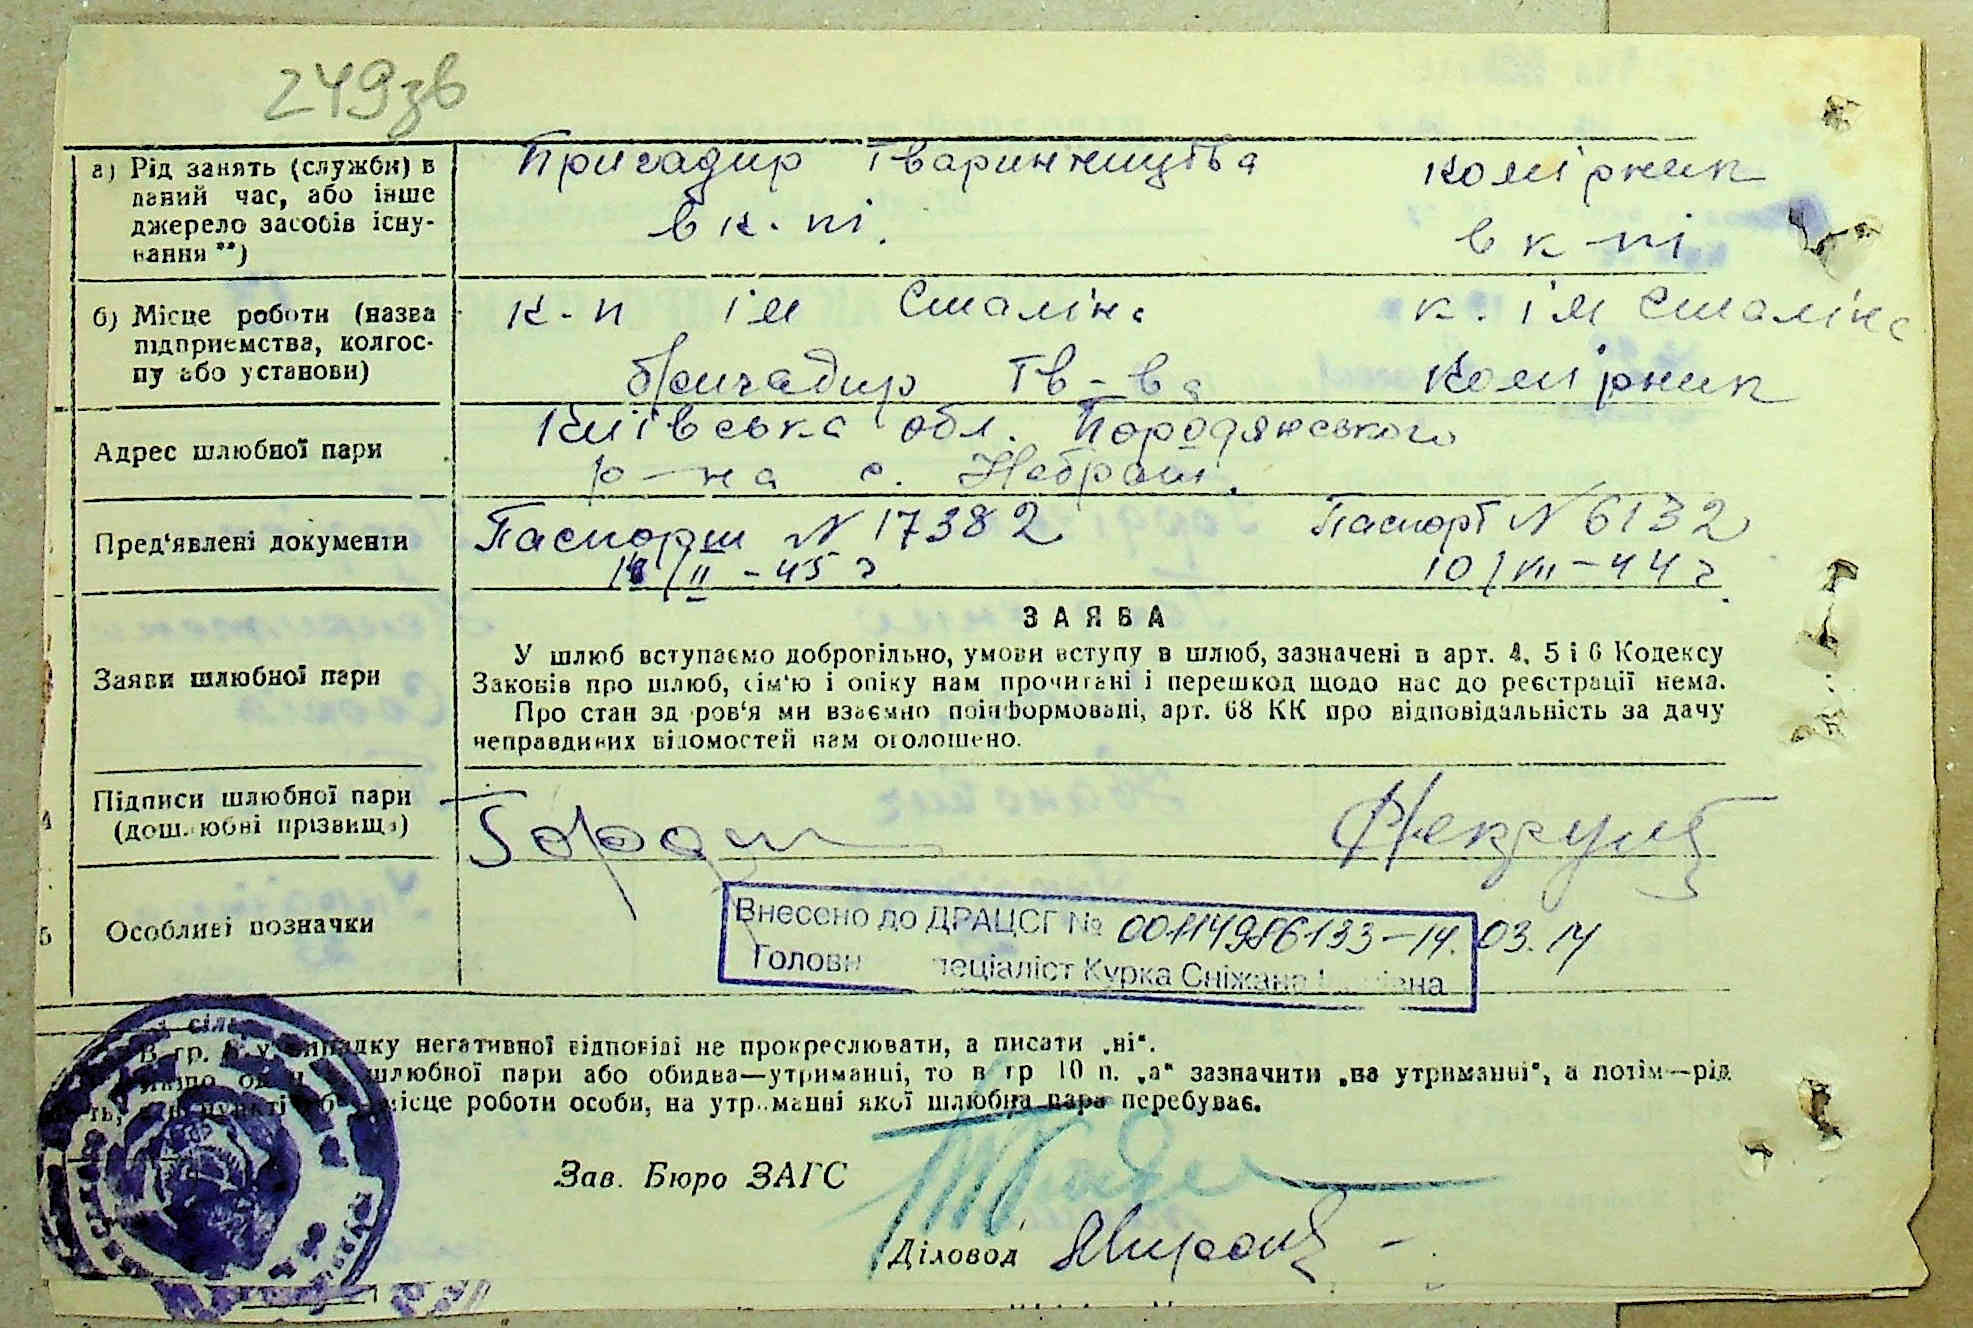 249зв
а) Рід занять (служби) в
даний час, або інше
джерело засобів існу-
вання **)
Пригадир тваринництва
в к. пі.
комірник
в к пі
б) Місце роботи (назва
підприємства, колгос-
пу або установи)
к-п ім Сталіна
бригадир тв-ва
к. ім Сталіна
Комірник
Адрес шлюбної пари
Київська обл. Породянського
р-на с. Небрат.
Пред'явлені документи
Паспорт N 17382
/II - 45 г.
Паспорт N 6132
10/VII - 44 г
Заяви шлюбної пари
ЗАЯВА
У шлюб вступаємо добровільно, умови вступу в шлюб, зазначені в арт. 4, 5 і 6 Кодексу
Законів про шлюб, сім'ю і опіку нам прочитані і перешкод щодо нас до реєстрації нема.
Про стан здоров'я ми взаємно поінформовані, арт. 68 КК про відповідальність за дачу
неправдивих відомостей нам оголошено.
4
Підписи шлюбної пари
(дошлюбні прізвища)
5
Особливі позначки
Внесено до ДРАЦСГ № 00114986133-14.03.14
Головн спеціаліст Курка Сніжана
В гр. у випадку негативної відповіді не прокреслювати, а писати „ні“.
Якщо один шлюбної пари або обидва—утриманці, то в гр 10 п. „а“ зазначити „на утриманні“, а потім—рід
пункті „б“ місце роботи особи, на утриманні якої шлюбна пара перебуває.
Зав. Бюро ЗАГС
Діловод